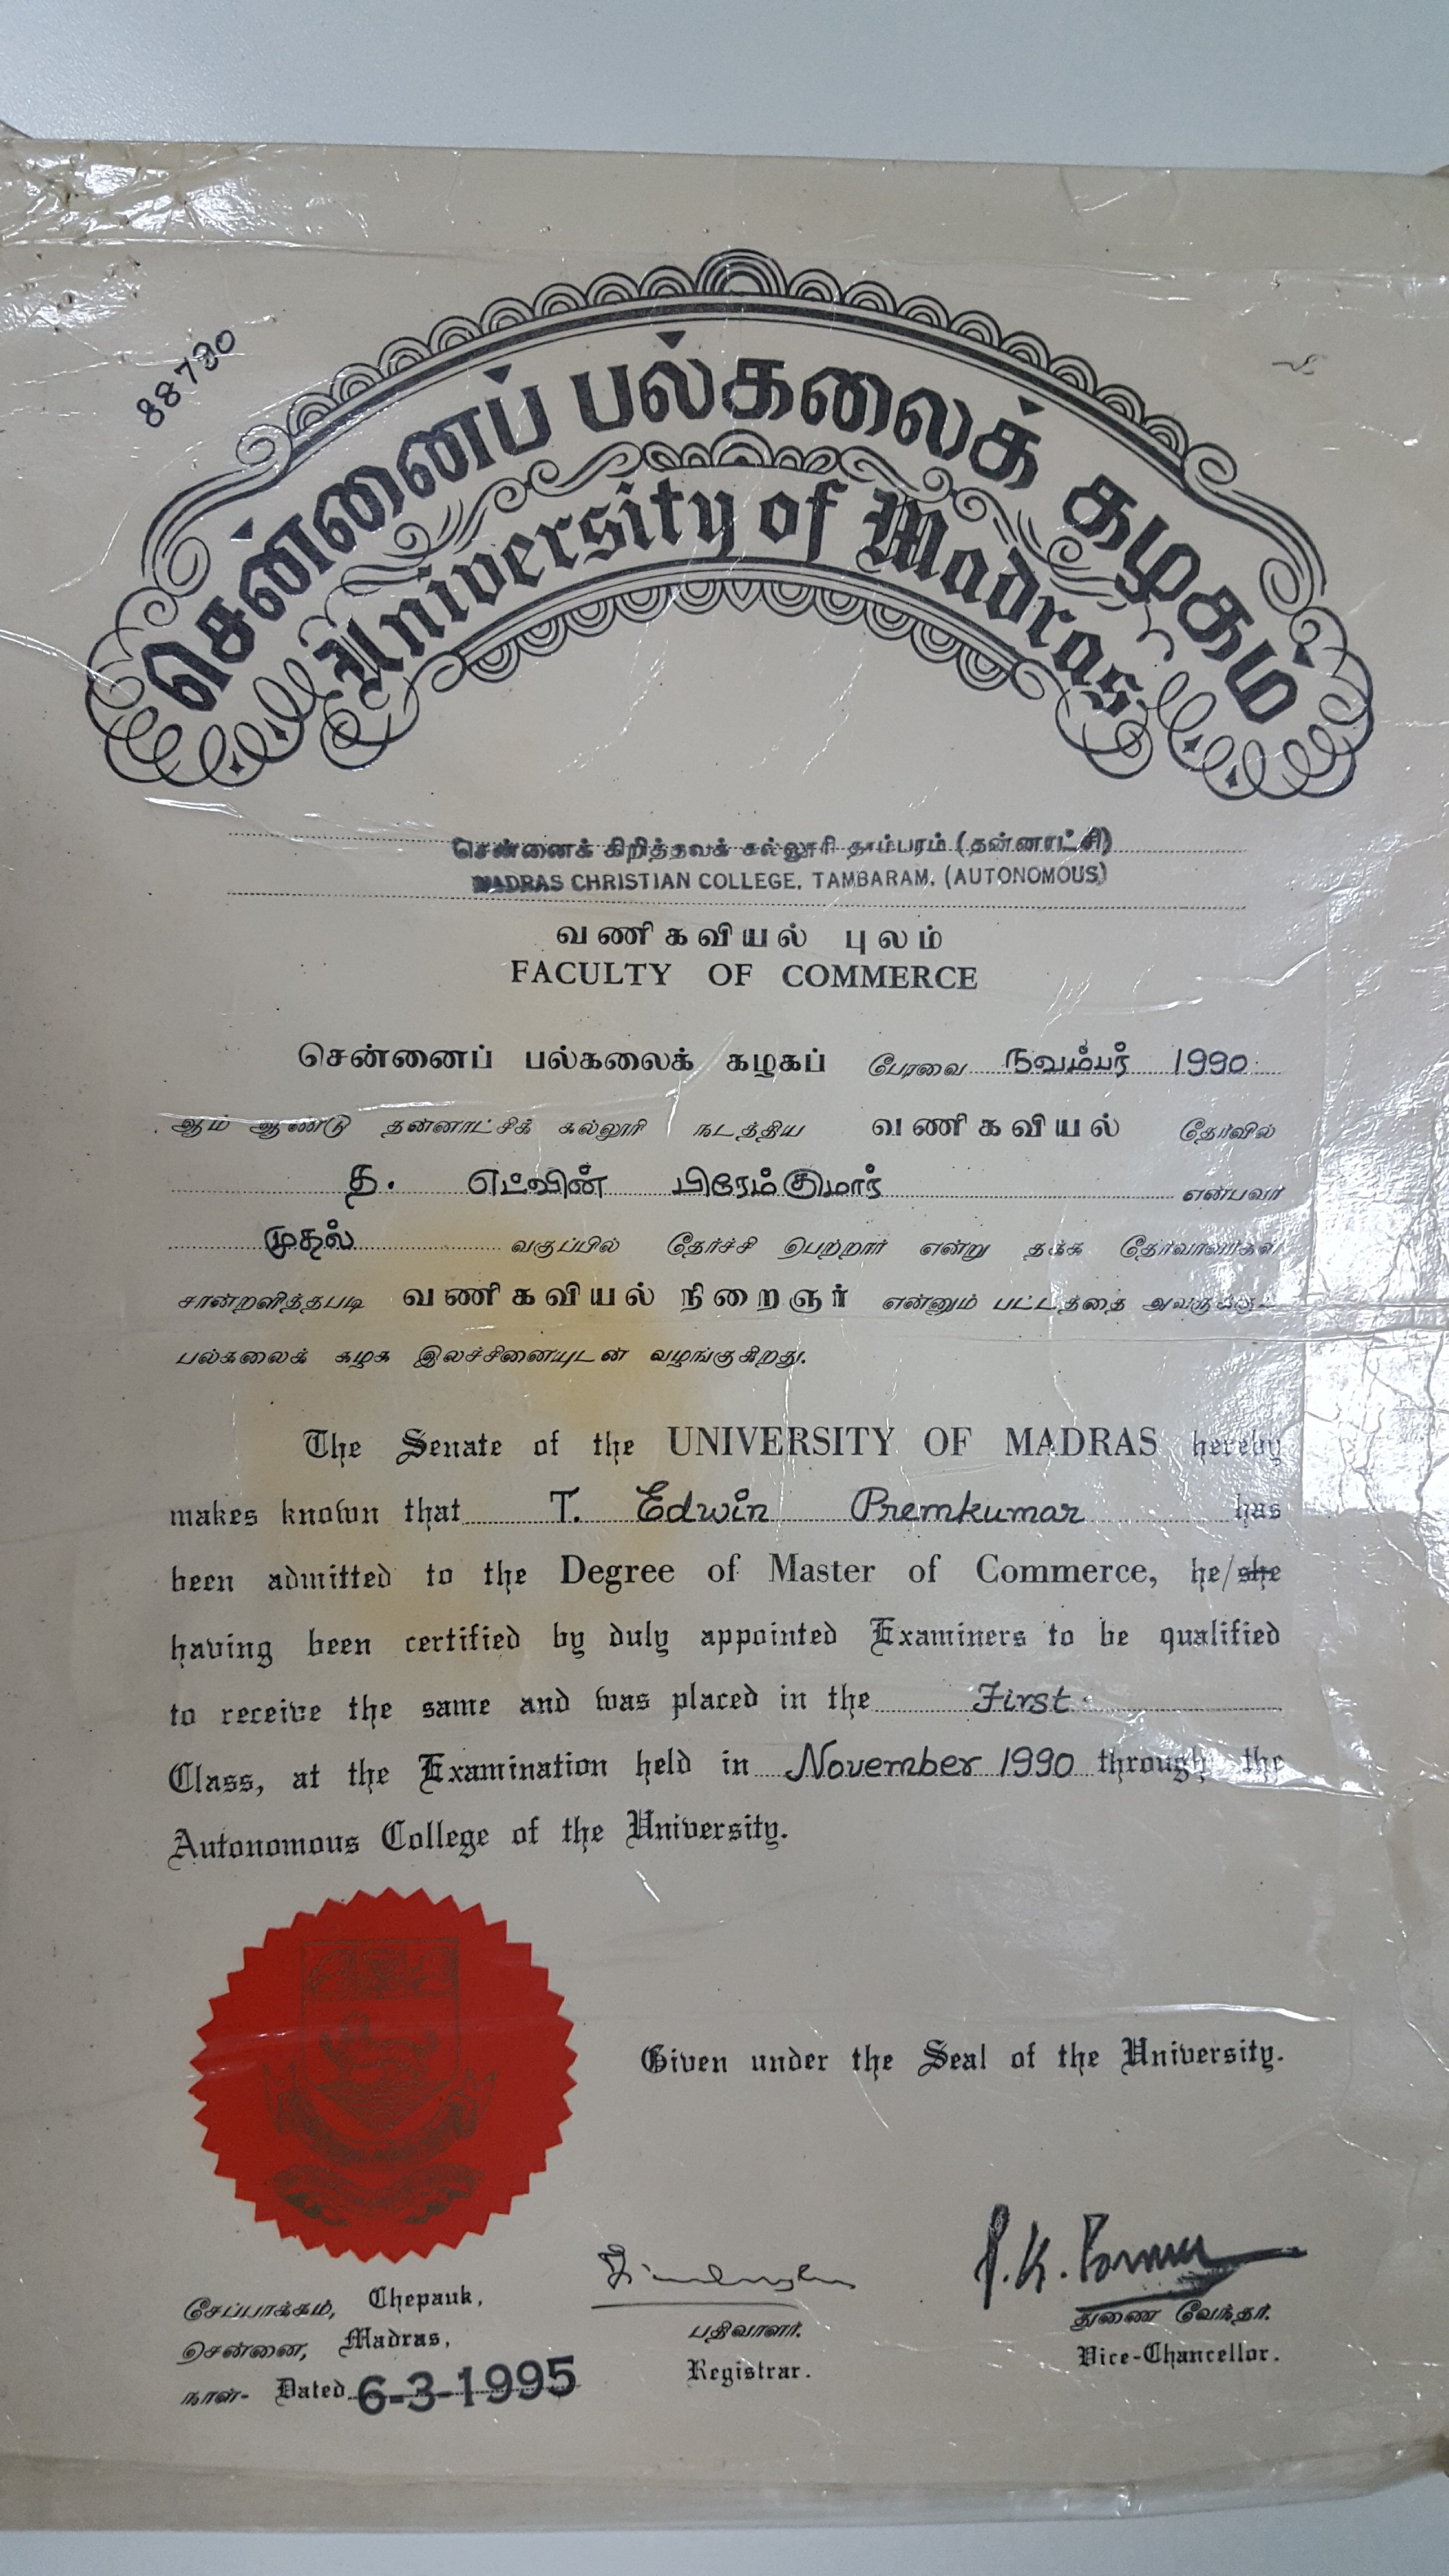 88730
சென்னைப் பல்கலைக் கழகம்
University of Madras
சென்னைக் கிறித்தவக் கல்லூரி தாம்பரம் (தன்னாட்சி)
MADRAS CHRISTIAN COLLEGE, TAMBARAM, (AUTONOMOUS)
வணிகவியல் புலம்
FACULTY OF COMMERCE
சென்னைப் பல்கலைக் கழகப் பேரவை நவம்பர் 1990
ஆம் ஆண்டு தன்னாட்சிக் கல்லூரி நடத்திய வணிகவியல் தேர்வில்
த. எட்வின் பிரேம்குமார் என்பவர்
முதல் வகுப்பில் தேர்ச்சி பெற்றார் என்று தக்க தேர்வாளர்கள்
சான்றளித்தபடி வணிகவியல் நிறைஞர் என்னும் பட்டத்தை அவருக்குப்
பல்கலைக் கழக இலச்சினையுடன் வழங்குகிறது.
The Senate of the UNIVERSITY OF MADRAS hereby
makes known that T. Edwin Premkumar has
been admitted to the Degree of Master of Commerce, he/she
having been certified by duly appointed Examiners to be qualified
to receive the same and was placed in the First
Class, at the Examination held in November 1990 through the
Autonomous College of the University.
Given under the Seal of the University.
சேப்பாக்கம், Chepauk,
சென்னை, Madras,
நாள்- Dated 6-3-1995
பதிவாளர்.
Registrar.
துணை வேந்தர்.
Vice-Chancellor.